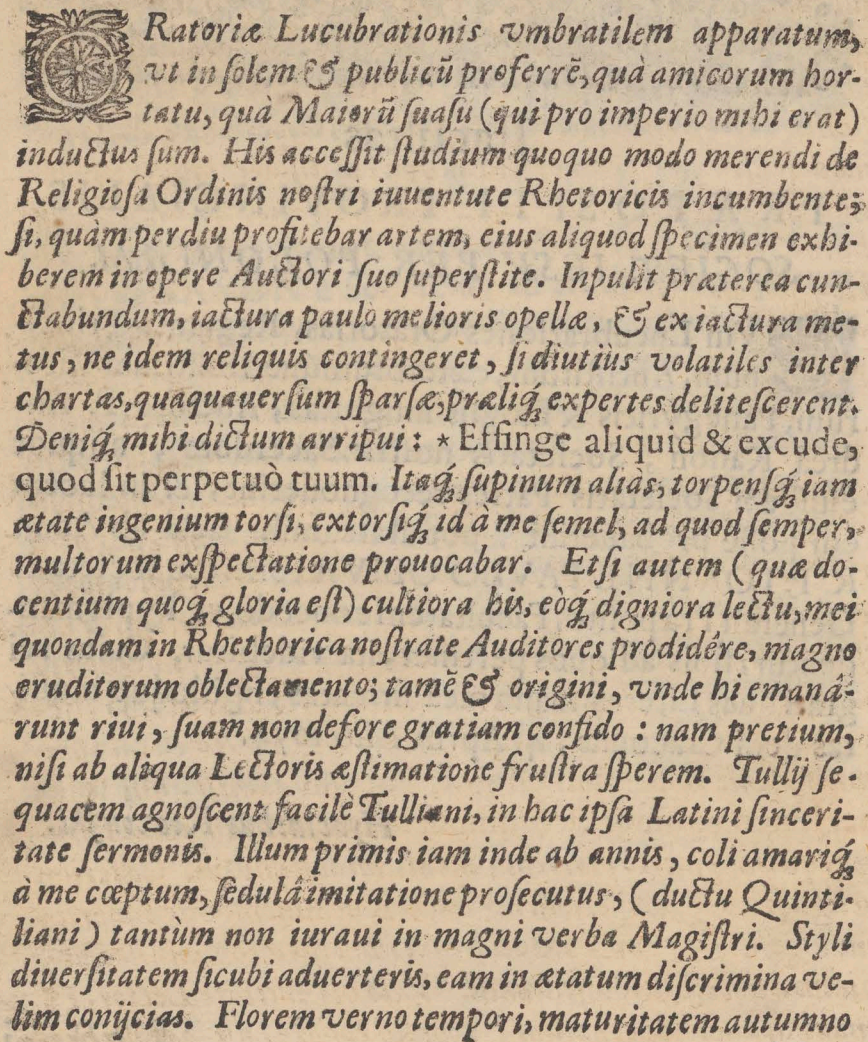 ORatoriæ Lucubrationis vmbratilem apparatum,
vt in ſolem & publicũ proferrẽ, quà amicorum hor-
tatu, quà Maiorũ ſuaſu (qui pro imperio mihi erat)
inductus ſum. His acceſſit ſtudium quoquo modo merendi de
Religioſa Ordinis noſtri iuuentute Rhetoricis incumbente;
ſi, quàm perdiu profitebar artem, eius aliquod ſpecimen exhi-
berem in opere Auctori ſuo ſuperſtite. Inpulit præterea cun-
ctabundum, iactura paulò melioris opellæ, & ex iactura me-
tus, ne idem reliquis contingeret, ſi diutiùs volatiles inter
chartas, quaquauerſum ſparſæ, præliq́; expertes delitеſcerent.
Deniq́; mihi dictum arripui: * Effinge aliquid & excude,
quod ſit perpetuò tuum. Itaq́; ſupinum aliàs, torpenſq́; iam
ætate ingenium torſi, extorſiq́; id à me ſemel, ad quod ſemper,
multorum exſpectatione prouocabar. Etſi autem (quæ do-
centium quoq́; gloria eſt) cultiora his, eòq́; digniora lectu, mei
quondam in Rhethorica noſtrate Auditores prodidére, magno
eruditorum oblectamento; tamẽ & origini, vnde hi emanâ-
runt riui, ſuam non defore gratiam confido: nam pretium,
niſi ab aliqua Lectoris æſtimatione fruſtra ſperem. Tullij ſe-
quacem agnoſcent facilè Tulliani, in hac ipſa Latini ſinceri-
tate ſermonis. Illum primis iam inde ab annis, coli amariq́;
à me cœptum, ſedulâ imitatione proſecutus, (ductu Quinti-
liani) tantùm non iuraui in magni verba Magiſtri. Styli
diuerſitatem ſicubi aduerteris, eam in ætatum diſcrimina ve-
lim conijcias. Florem verno tempori, maturitatem autumno